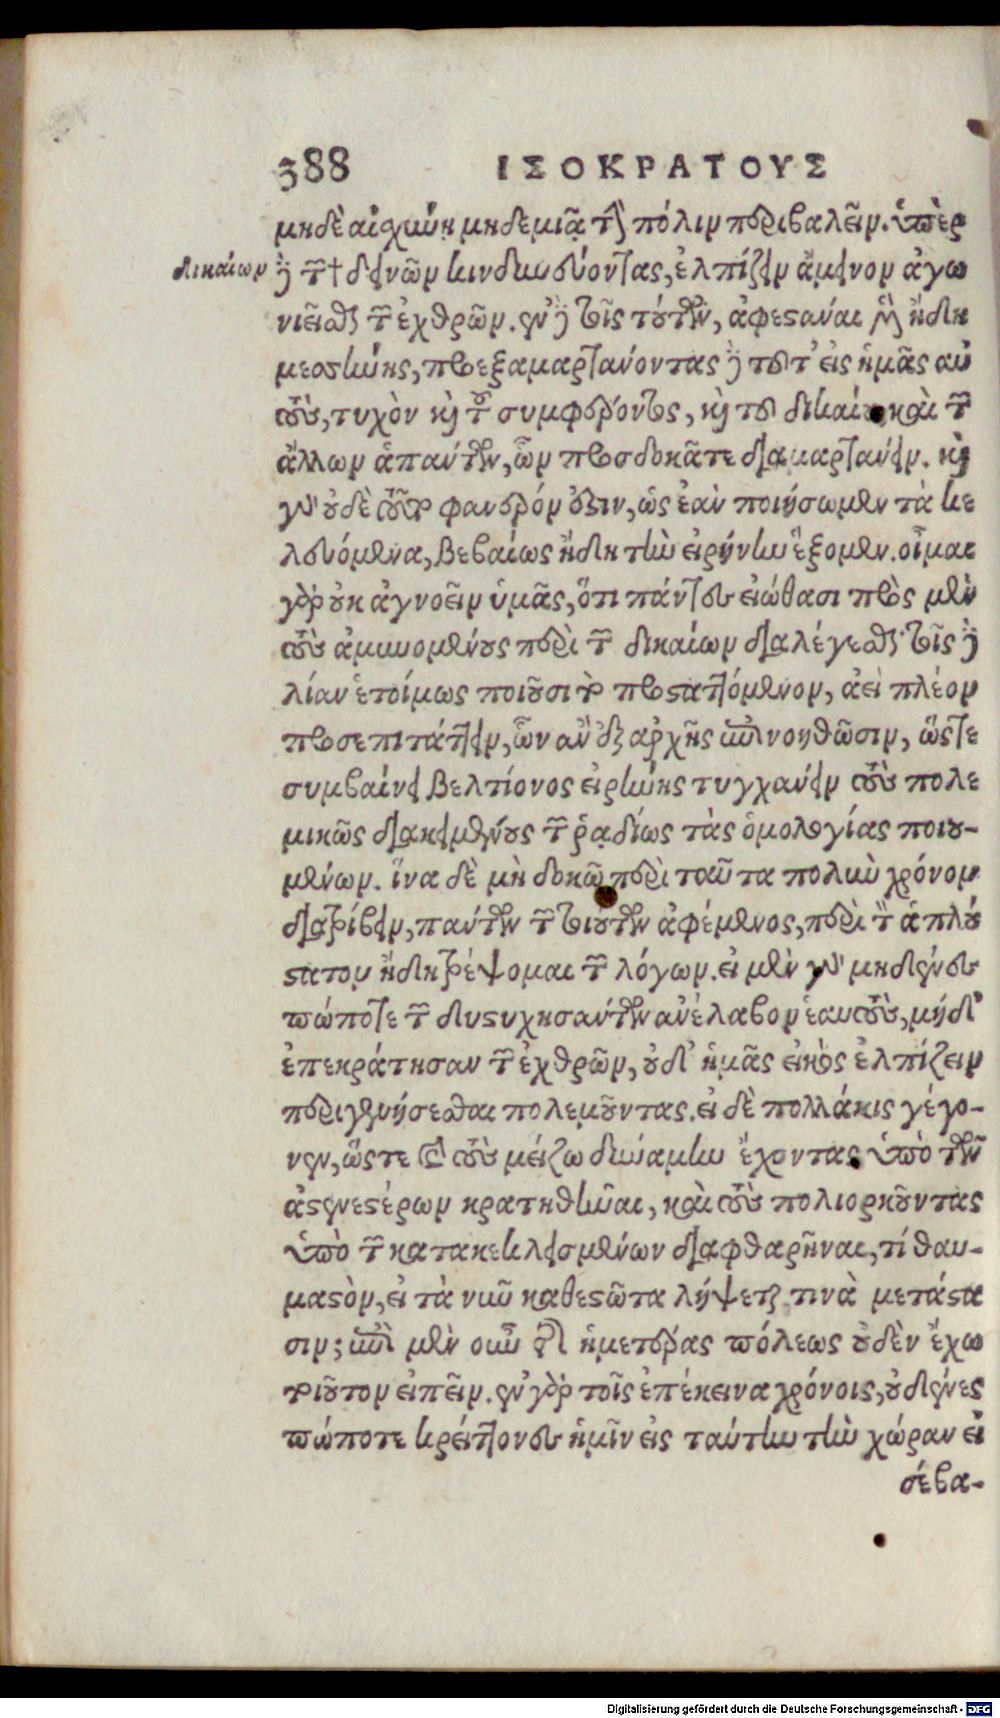 388 ΙΣΟΚΡΑΤΟΥΣ
μηδὲ αἰσχύνῃ μηδεμιᾷ τὴν πόλιν περιβαλεῖν. ὑπὲρ
δικαίων
δὲ τῶν † δεινῶν κινδυνεύοντας, ἐλπίζειν ἄμεινον ἀγω
νιεῖσθαι τῶν ἐχθρῶν. ἐν δὲ τοῖς τούτων, ἀφεστάναι μὲν ἤδη
μεσσήνης, προεξαμαρτάνοντας δὲ τοῦτ' εἰς ἡμᾶς αὐ
τοὺς, τυχὸν καὶ τοῦ συμφέροντος, καὶ τοῦ δικαίου, καὶ τῶν
ἄλλων ἁπάντων, ὧν προσδοκᾶτε διαμαρτάνειν. καὶ
γὰρ οὐδὲ τοῦτο φανερόν ἐστιν, ὡς ἐὰν ποιήσωμεν τὰ κε
λευόμενα, βεβαίως ἤδη τὴν εἰρήνην ἕξομεν. οἶμαι
γὰρ οὐκ ἀγνοεῖν ὑμᾶς, ὅτι πάντες εἰώθασι πρὸς μὲν
τοὺς ἀμυνομένους περὶ τῶν δικαίων διαλέγεσθαι· τοῖς δὲ
λίαν ἑτοίμως ποιοῦσι τὸ προσταττόμενον, ἀεὶ πλέον
προσεπιτάττειν, ὧν ἂν ἐξ ἀρχῆς ἐπινοηθῶσιν, ὥστε
συμβαίνει βελτίονος εἰρήνης τυγχάνειν τοὺς πολε
μικῶς διακειμένους τῶν ῥᾳδίως τὰς ὁμολογίας ποιου-
μένων. ἵνα δὲ μὴ δοκῶ περὶ ταῦτα πολὺν χρόνον
διατρίβειν, πάντων τῶν τοιούτων ἀφέμενος, περὶ τὸν ἁπλού
στατον ἤδη τρέψομαι τῶν λόγων. εἰ μὲν γὰρ μηδένες
πώποτε τῶν δυστυχησάντων ἀνέλαβον ἑαυτοὺς, μήδ'
ἐπεκράτησαν τῶν ἐχθρῶν, οὐδ' ἡμᾶς εἰκὸς ἐλπίζειν
περιγενήσεσθαι πολεμοῦντας. εἰ δὲ πολλάκις γέγο-
νεν, ὥστε καὶ τοὺς μείζω δύναμιν ἔχοντας, ὑπὸ τῶν
ἀσθενεστέρων κρατηθῆναι, καὶ τοὺς πολιορκοῦντας
ὑπὸ τῶν κατακεκλεισμένων διαφθαρῆναι, τί θαυ-
μαστὸν, εἰ τὰ νῦν καθεστῶτα λήψεταί τινὰ μετάστα
σιν; ἐπὶ μὲν οὖν τῆς ἡμετέρας πόλεως οὐδὲν ἔχω
τοιοῦτον εἰπεῖν. ἐν γὰρ τοῖς ἐπέκεινα χρόνοις, οὐδένες
πώποτε κρείττονες ἡμῖν εἰς ταύτην τὴν χώραν εἰ
σέβα-
Digitalisierung gefördert durch die Deutsche Forschungsgemeinschaft - DFG